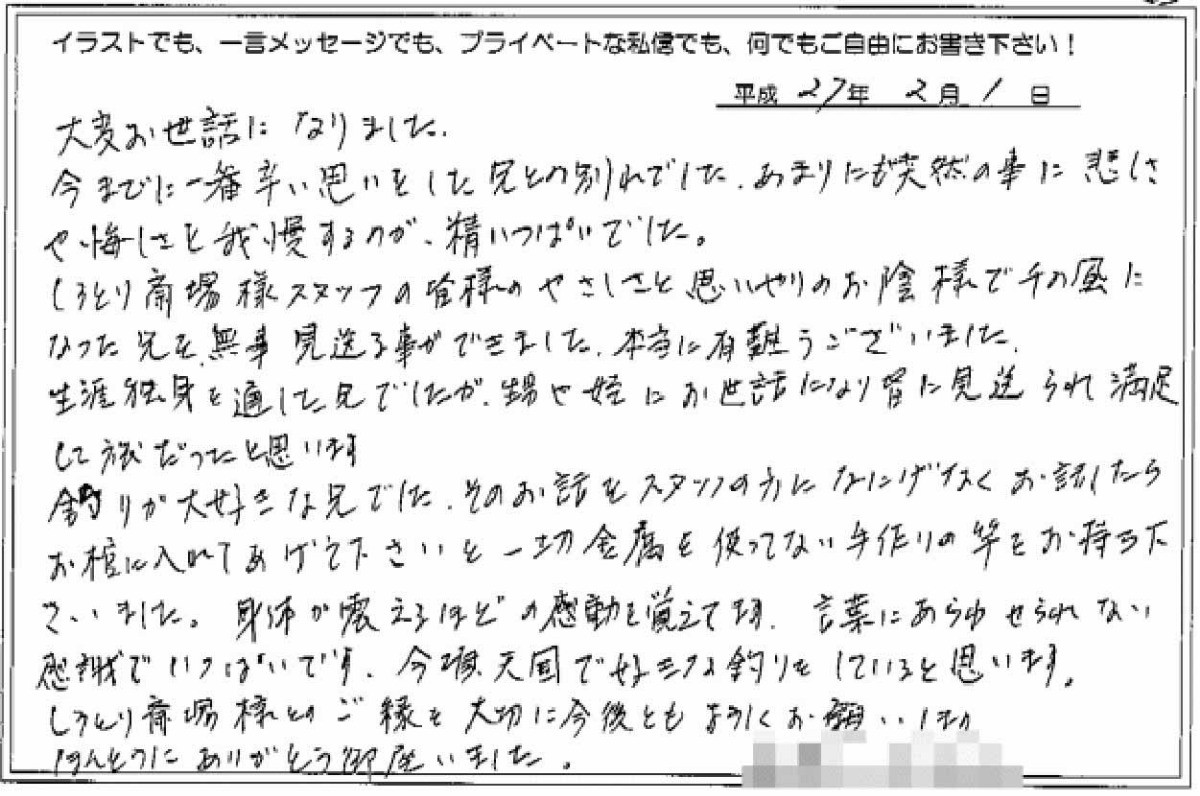 イラストでも、一言メッセージでも、プライベートな私信でも、何でもご自由にお書き下さい！
平成 27年 2月 1日
大変お世話になりました.
今までに一番辛い思いをした兄との別れでした.あまりにも突然の事に悲しさ
や悔しさを我慢するのが、精いっぱいでした。
しろとり斎場様スタッフの皆様のやさしさと思いやりのお陰様で千の風に
なった兄を無事見送る事ができました.本当に有難うございました.
生涯独身を通した兄でしたが、甥や姪にお世話になり皆に見送られ満足
して旅だったと思います
釣りが大好きな兄でした.そのお話をスタッフの方になにげなくお話したら
お棺に入れてあげて下さいと一切金属を使ってない手作りの竿をお持ち下
さいました。身体が震えるほどの感動を覚えてます.言葉にあらわせられない
感謝でいっぱいです.今頃天国で好きな釣りをしていると思います。
しろとり斎場様とのご縁を大切に今後ともよろしくお願いします
ほんとうにありがとう御座いました。